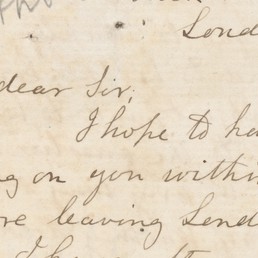 Lond
dear Sir,
I hope to ha
g on you within
re leaving Lond